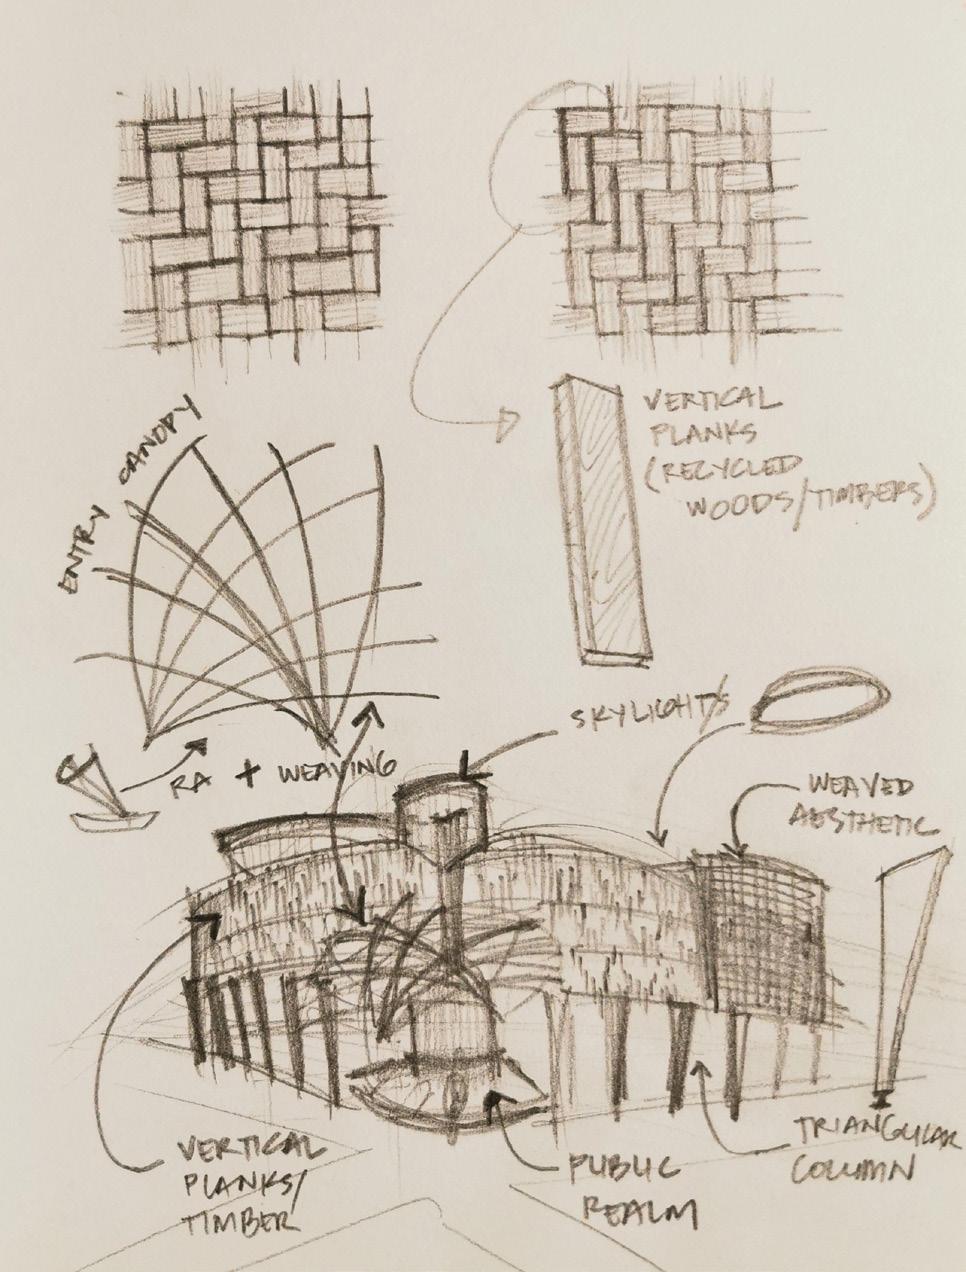 VERTICAL
PLANKS
(RECYCLED
WOODS/TIMBERS)
ENTRY CANOPY
SKYLIGHTS
RA + WEAVING
WEAVED
AESTHETIC
VERTICAL
PLANKS/
TIMBER
PUBLIC
REALM
TRIANGULAR
COLUMN